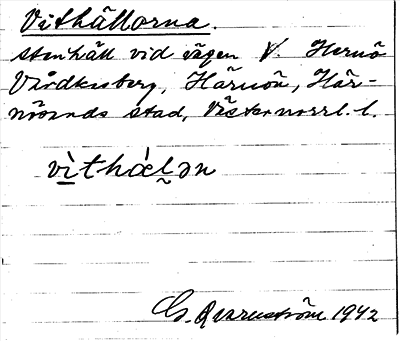 Vithällorna.
stenhäll vid vägen V. Hernö
Vårdkasberg, Härnön, Här-
nösands stad, Västernorrl. l.
vìthǽl̮ən
G. Qvarnström 1942